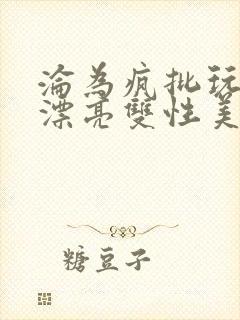 淪為瘋批玩
漂亮雙性美
糖豆子